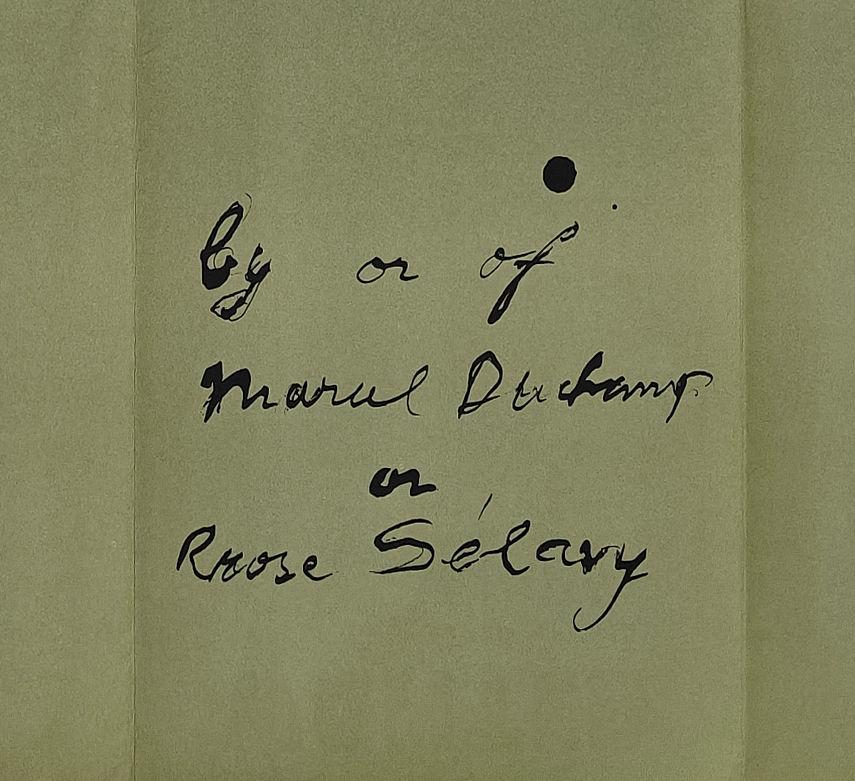 by or of
Marcel Duchamp
or
Rrose Sélavy